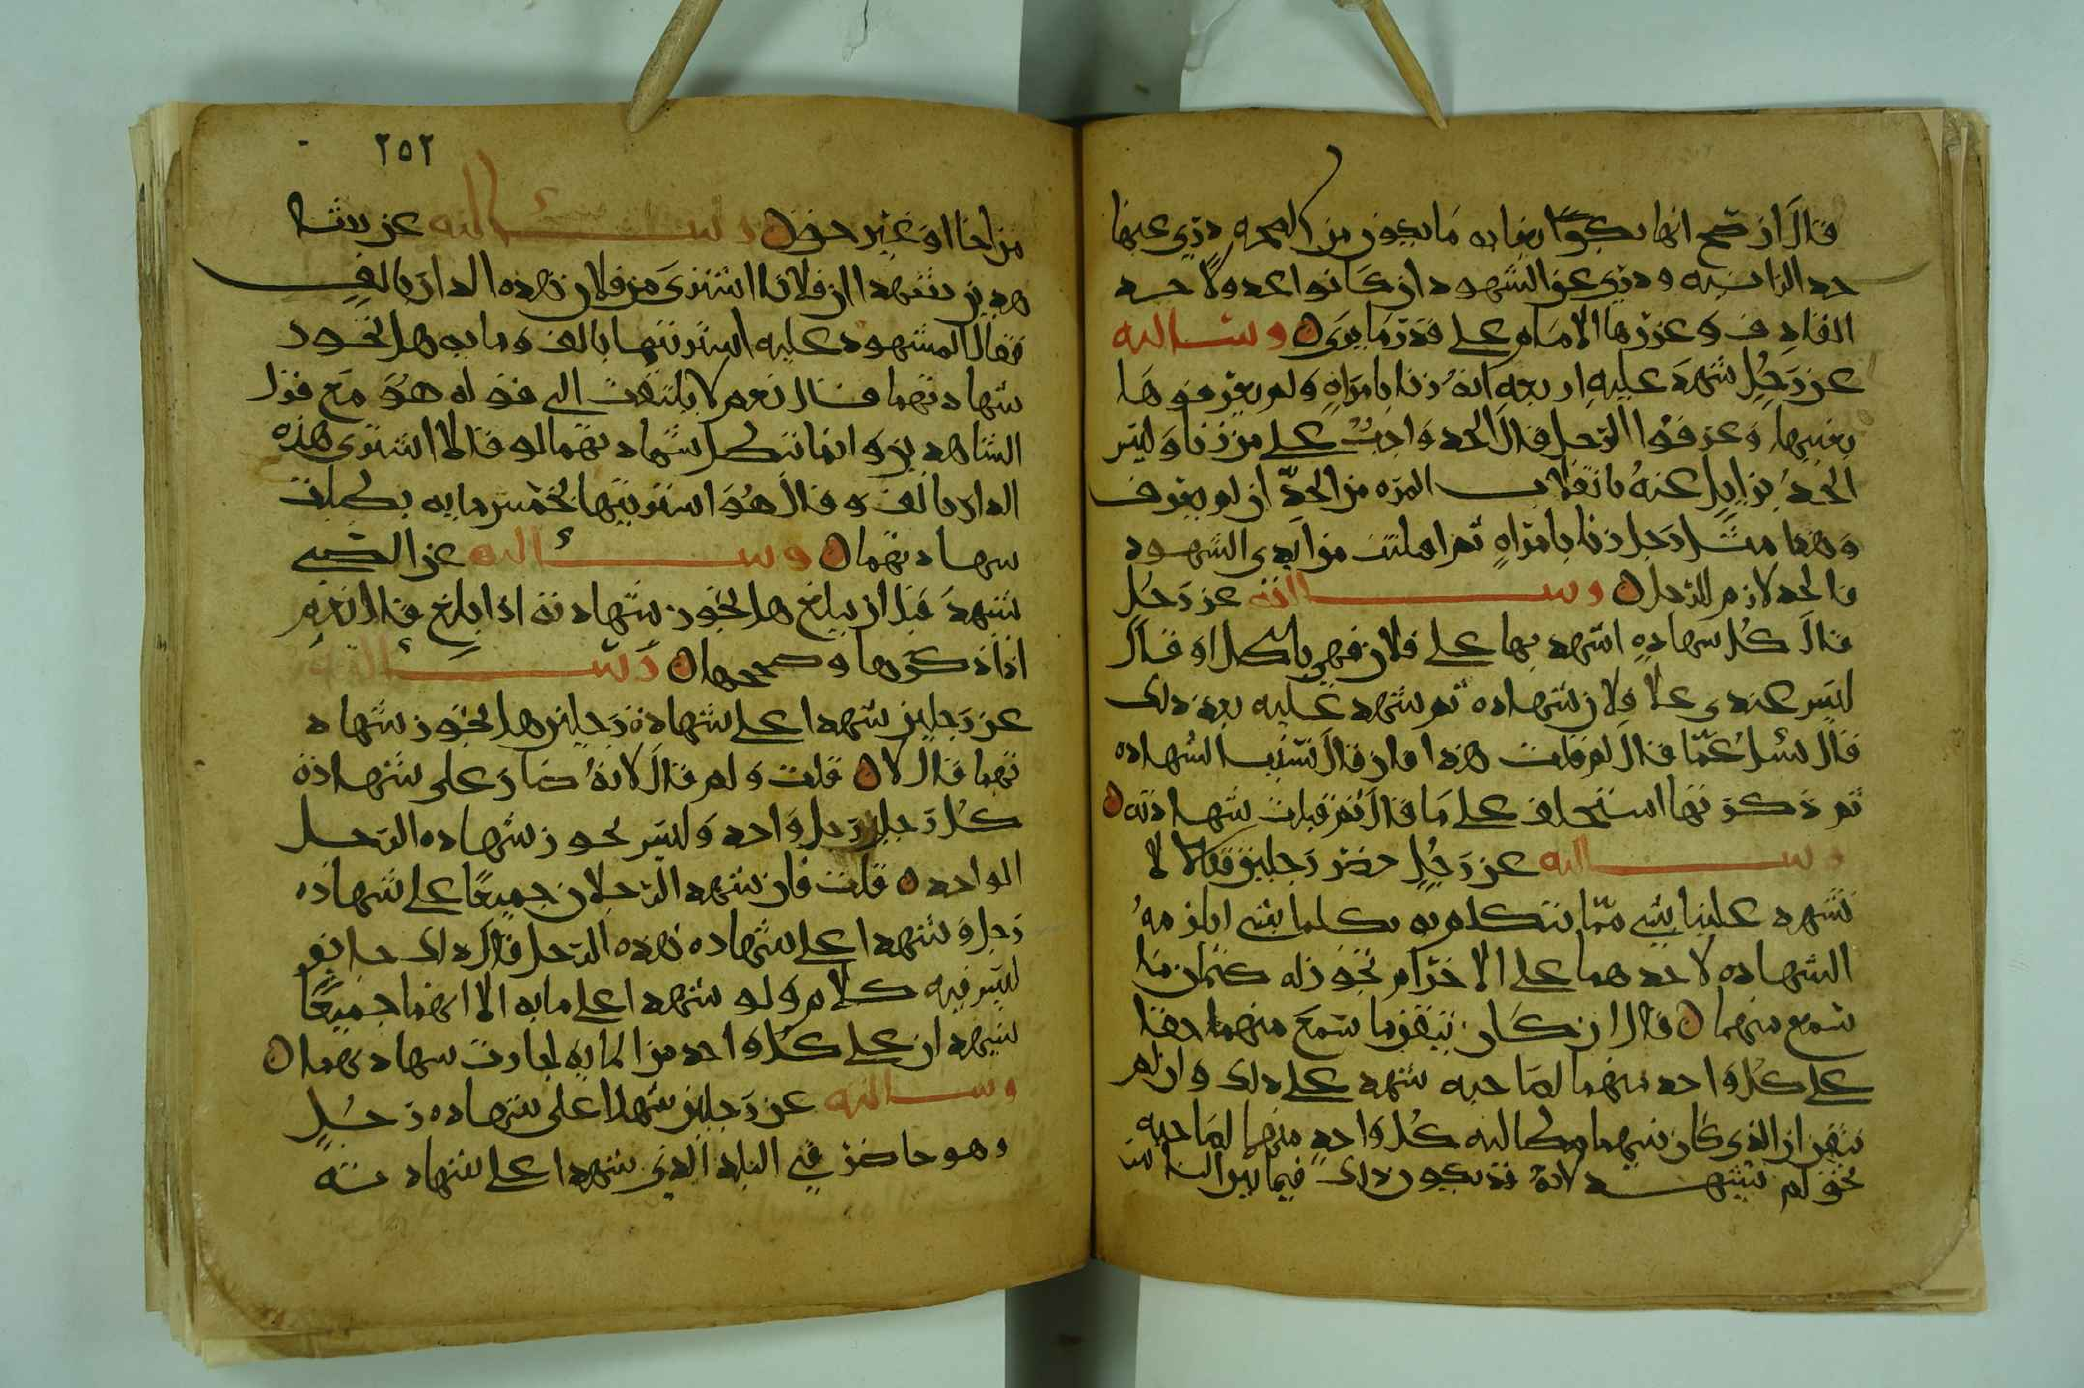 قال ان صح انها بكرًا بغايه ما يكون من الصحه دري عنها
حد الزانيه ودري عن الشهود ان كانوا اعدولا حد
القاذف وعزرها الامام على قدر ما يرى ه وسالته
عن رجلٍ شهد عليه اربعه انه زنا بامراهٍ ولم يعرفوها
بعينها وعرفوا الرجل قال الحد واجبٌ على من زنا وليس
الحد بزايل عنه بانفلات المره من الحدّ ان لم يعرف
وهذا مثل رجل زنا بامراهٍ ثم افلتت من ايدي الشهود
فالحد لازم للرجل ه وسالته عن رجل
قال كل شهادهٍ اشهد بها على فلان فهي باطل او قال
ليس عندي على فلان شهاده ثم شهد عليه بعد ذلك
قال يسل عمّا قال لم قلت هذا فان قال نسيت الشهاده
ثم ذكرتها استحلف على ما قال ثم قبلت شهادته ه
وسالته عن رجلٍ حضر رجلين فقالا لا
تشهد علينا بشي ممّا نتكلم به فتكلما بشي ايلزمه
الشهاده لاحدهما على الاخر ام يجوز له كتمان ما
سمع منهما ه قال ان كان تيقن ما سمع منهما حقا
على كل واحد منهما لصاحبه شهد على ذلك وان لم
يتيقن ان الذي كان بينهما مطالبه كل واحدٍ منهما لصاحبه
بحق لم يشهد لانه قد يكون ذلك فيما بين الناس
٢٥٢
مزاحا او غير حق ه وسألته عن شا
هدين شهدا ان فلانا اشترى من فلان هذه الدار بالف
فقال المشهود عليه اشتريتها بالف ومايه هل تجوز
شهادتهما قال نعم لا يلتفت الى قوله هو مع قول
الشاهدين وانما تبطل شهادتهما لو قالا اشترى هذه
الدار بالف وقال هو اشتريتها بخمس مايه بطلت
شهادتهما ه وسألته عن الصبي
شهد قبل ان يبلغ هل تجوز شهادته اذا بلغ قال نعم
اذا ذكرها وصححها ه وسألته
عن رجلين شهدا على شهادة رجلين هل تجوز شهاد
تهما قال لا ه قلت ولم قال لانه صار على شهادة
كل رجلٍ رجل واحد وليس تجوز شهاده الرجل
الواحد ه قلت فان شهد الرجلان جميعًا على شهاده
رجل وشهدا على شهاده هذه الرجل قال ذلك جايز
ليس فيه كلام ولو شهد اعلى مايه الا انهما جميعًا
شهدان على كل واحد من المايه لجازت شهادتهما ه
وسالته عن رجلين شهدا على شهاده رجلٍ
وهو حاضر في البلد الذي شهدا على شهادته